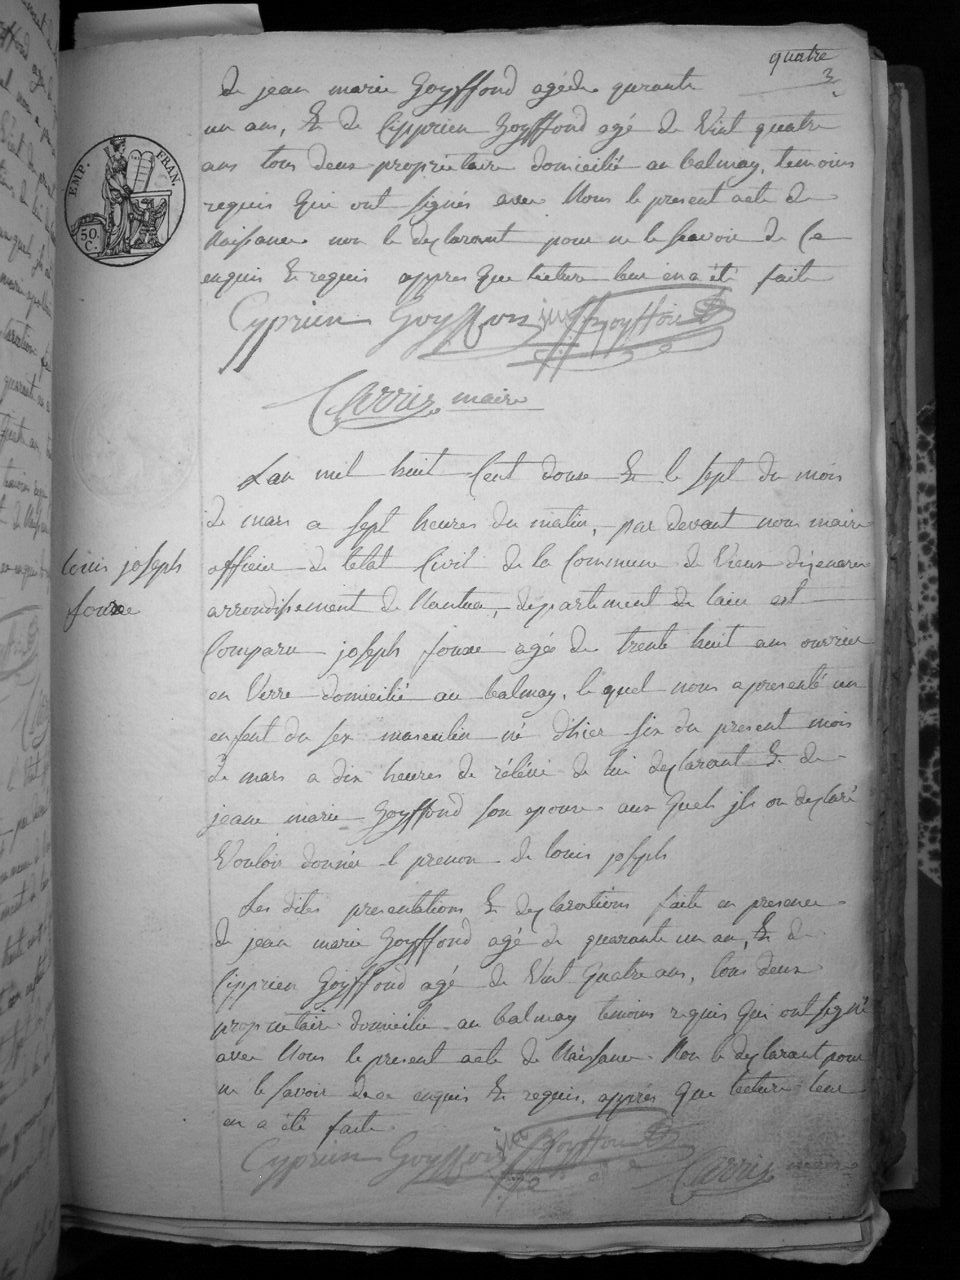 quatre
3
de jean marie Goyffond agé de quarante
un ans, & de Cipprien Goyffond agé de Vint quatre
ans tous deux propriétaire domicilié au balmay, temoins
requis Qui ont signés avec Nous le present acte de
Naissance non le desclarant pour ne le scavoir de Ce
enquis & requis appres Que lecture leur en a été faite
Cyprien Goyffon jm Goyffond
Carrier maire
EMP. FRAN.
50 C.
Lan mil huit Cent douse & le sept du mois
de mars a sept heures du matin, par devant nous maire
officier de letat Civil de la Commune de Vieux disenave
louis joseph
fouxe
arrondissement de Nantua, departement de lain est
Comparu joseph fouxe agée de trente huit ans ouvrier
en Verre domicilié au balmay, le quel nous a presenté un
enfent du sex masculin né d'hier six du present mois
de mars a dix heures de de lui desclarant & de
jeane marie Goyffond son epouse aux Quels jls on desclaré
Vouloir donnée le prenon de louis joseph
Les dites presentations & desclarations faite en presence
de jean marie Goyffond agé de quarante un an, & de
Cipprien Goyffond agé de Vint Quatre ans, tous deux
proprietaire domicilie au balmay temoins requis Qui ont signé
avec Nous le present acte de Naissance Non le desclarant pour
ne le savoir de ce enquis & requis, apprés Que lecture leur
en a été faite
Cyprien Goyffon jm Goyffond Carrier maire